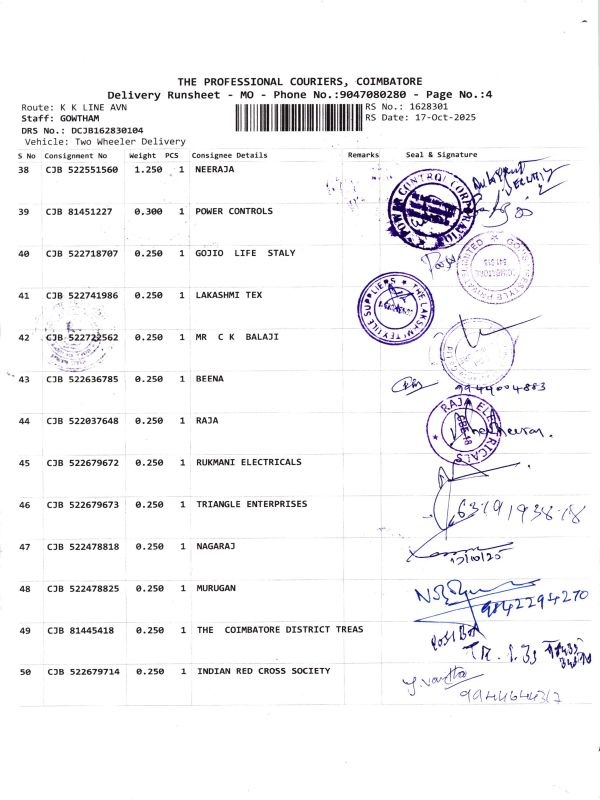 THE PROFESSIONAL COURIERS, COIMBATORE
Delivery Runsheet - MO - Phone No.:9047080280 - Page No.:4
Route: K K LINE AVN RS No.: 1628301
Staff: GOWTHAM RS Date: 17-Oct-2025
DRS No.: DCJB162830104
Vehicle: Two Wheeler Delivery
S No Consignment No Weight PCS Consignee Details Remarks Seal & Signature
38 CJB 522551560 1.250 1 NEERAJA
POWER CONTROL CORPORATION
39 CJB 81451227 0.300 1 POWER CONTROLS
40 CJB 522718707 0.250 1 GOJIO LIFE STALY
41 CJB 522741986 0.250 1 LAKASHMI TEX
THE LAKSHMI TEXTILE SUPPLIERS
42 CJB 522722562 0.250 1 MR C K BALAJI
43 CJB 522636785 0.250 1 BEENA 9944004883
44 CJB 522037648 0.250 1 RAJA
RAJA ELECTRICALS CBE-18
45 CJB 522679672 0.250 1 RUKMANI ELECTRICALS
46 CJB 522679673 0.250 1 TRIANGLE ENTERPRISES
47 CJB 522478818 0.250 1 NAGARAJ 17/10/25
48 CJB 522478825 0.250 1 MURUGAN 9842294270
49 CJB 81445418 0.250 1 THE COIMBATORE DISTRICT TREAS
50 CJB 522679714 0.250 1 INDIAN RED CROSS SOCIETY
9944644317